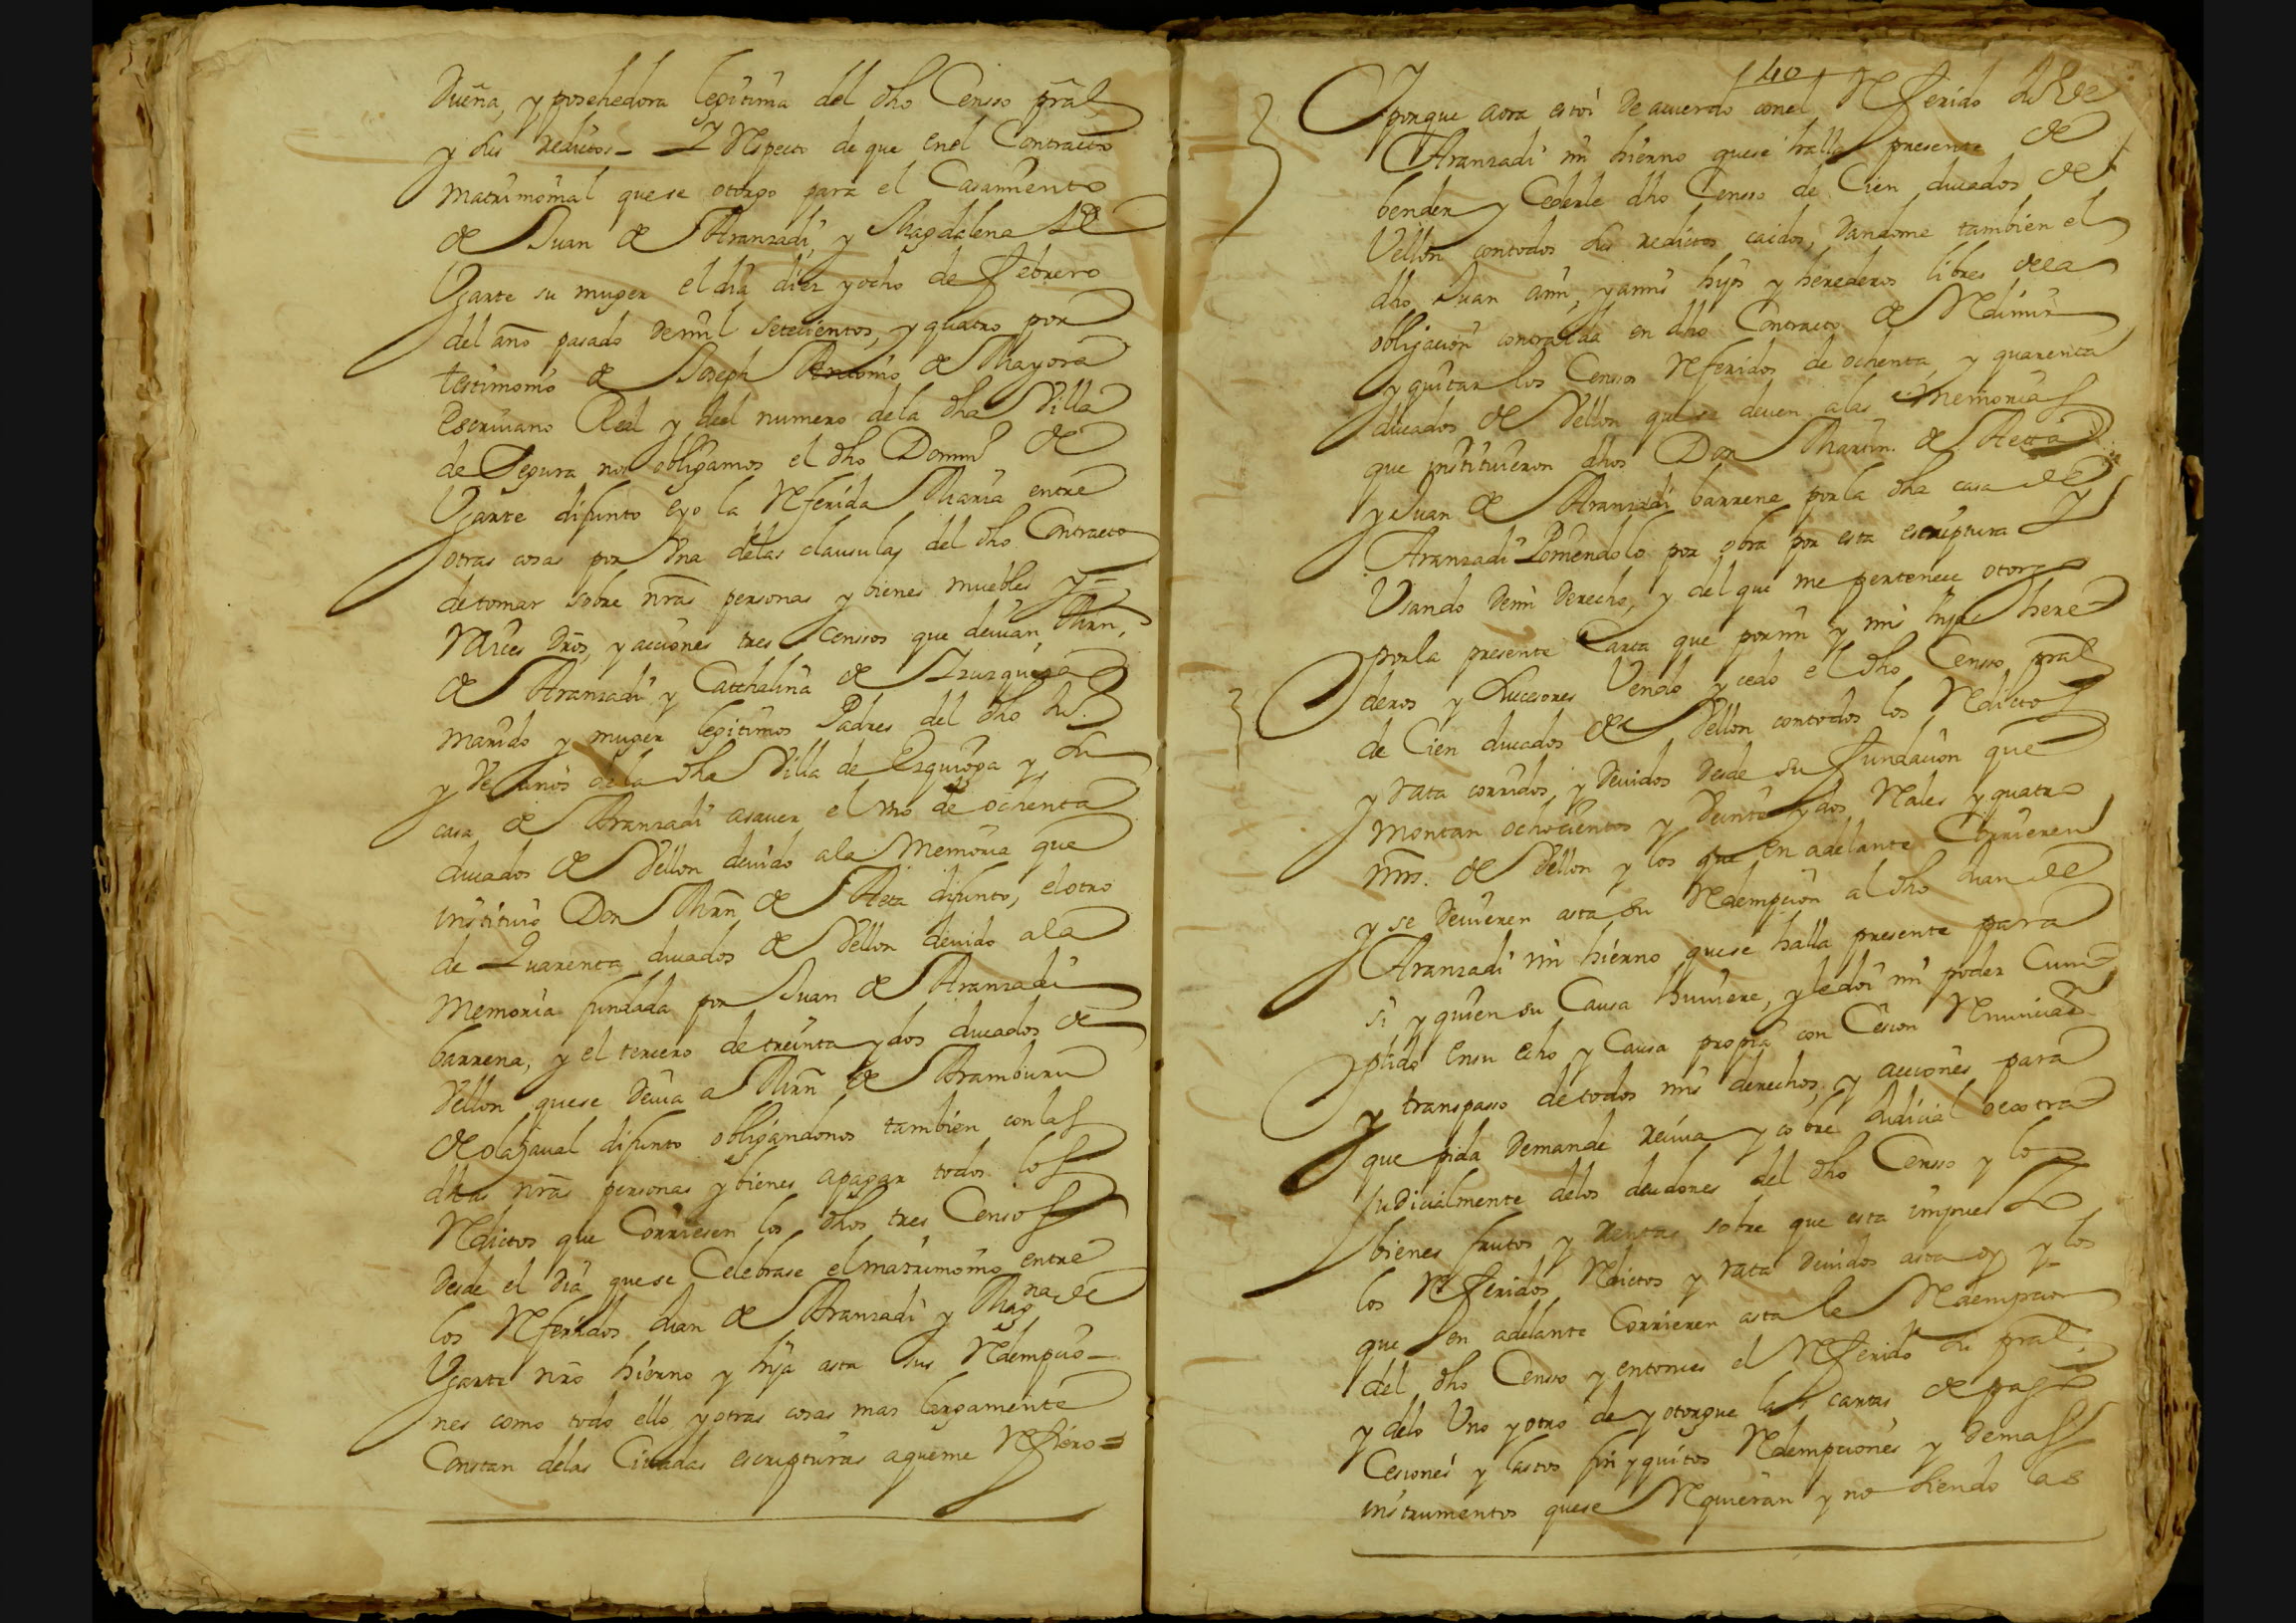 Dueña, y posehedora legitima del dho Censso prâl
y sus reditos - Y Respecto de que enel Contracto
matrimonial quese otorgo para el Casamiento
de Juan de Aranzadi, y Magdalena de
Ugarte su muger el dia diez yocho de febrero
del año pasado demil setecientos, y quatro por
testimonio de Joseph Antonio de Mayora
Escriuano Real y del numero dela dha Villa
de Segura nos obligamos el dho Domin de
Ugarte difunto eyo la Referida Maria entre
otras cosas por Vna delas clausulas del dho Contracto
detomar sobre nrâs personas y bienes muebles y-
raices drôs, y acciones tres Censsos que deuian, Mrn,
de Aranzadi y Catthalina de
marido y muger legitimos Padres del dho
y Vezinos dela dha Villa de Ezquioga y su
casa de Aranzadi asauer el Vno de ochenta
ducados de Vellon deuido ala Memoria que
instituio Don Mrn de Aeta difunto, elotro
de Quarenta ducados de Vellon deuido ala
Memoria fundada por Juan de Aranzadi
barrena, y el tercero detreinta ydos ducados de
Vellon quese deuia a Mrn de Aramburu
de olazaual difunto obligandonos tambien conlas
dhas nrâs personas ybienes apagar todos los
Redictos que Corriesen los dhos tres Censos
desde el dia quese Celebrase elmatrimonio entre
los Referidos Juan de Aranzadi y Magna de
Ugarte nrô hierno y hija asta sus Redempcio-
nes como todo ello yotras cosas mas largamente
Constan delas Citadas escripturas aqueme Refiero=
40
Y porque aora estoi de acuerdo conel Referido Juo de
Aranzadi mi hierno quese halla presente de
bender y Cederle dho Censso de Cien ducados de
Vellon contodos sus redictos caidos, dandome tambien el
dho Juan ami, yamis hijos y herederos libres dela
obligacion contraida en dho Contracto de Redimir
y quitar los Censsos Referidos de ochenta, y quarenta
ducados de Vellon que se deuen alas Memorias
que instituieron dhos Don Martin de Aetta
y Juan de Aranzadi barrena por la dha casa de
Aranzadi Poniendolo por obra por esta escriptura Y
Usando demi derecho, y del que me pertenece otorgo
por la presente Carta que pormi y mis hijos here-
deros y sucesores Vendo y cedo el dho Censso prâl
de Cien ducados de Vellon contodos los Redictos
y rata corridos, y deuidos desde su fundacion que
montan ochocientos y Veinte ydos Reales y quatro
mrs. de Vellon y los que en adelante Corrieren
y se deuieren asta su Redempcion al dho Juan de
Aranzadi mi hierno quese halla presente para
si y quien su Causa huuiere, y ledoi mi poder Cum-
plido Ensu echo y Causa propia con Cesion Renunciaon
y transpasso detodos mis derechos, y acciones para
que pida demande reciua y cobre Judicial o extra
judicialmente delos deudores del dho Censso y lo
bienes frutos y Rentas sobre que esta impuesto
los Referidos Redictos y rata deuidos asta oy y los
que en adelante Corrieren asta la Redempcion
del dho Censso y entonces el Referido su prâl,
y delo Uno yotro de yotorgue las cartas de pago
Cesiones y lastos fin yquitos Redempciones y demas
instrumentos quese Requieran y no siendo las